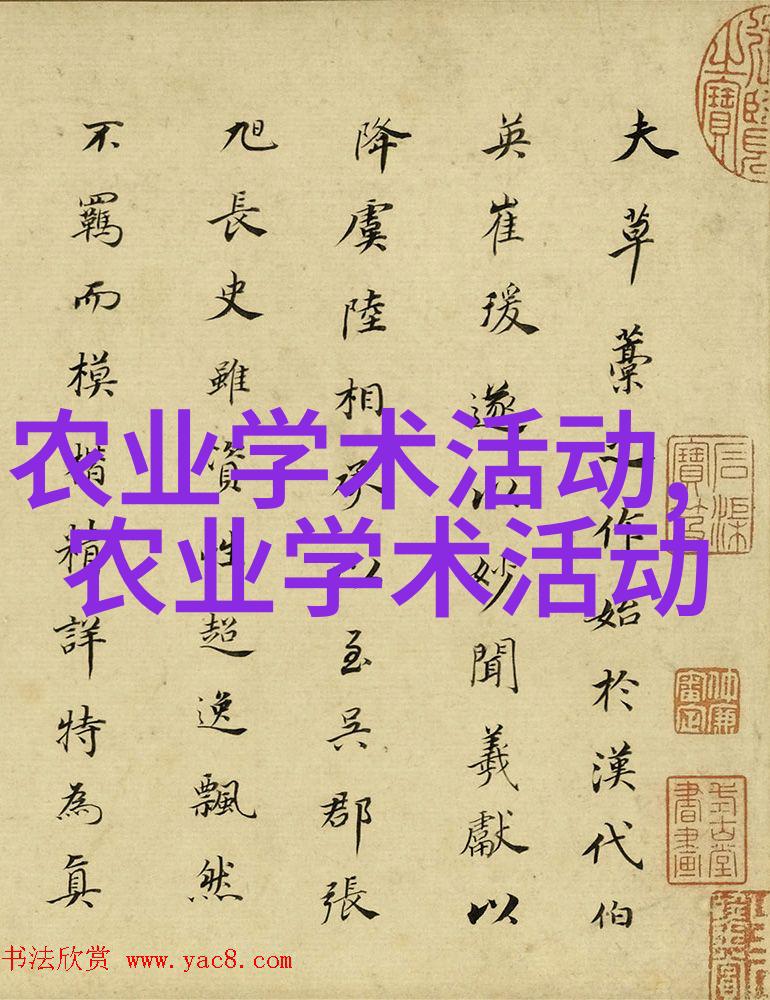 夫草藁之作始於漢代伯
英崔瑗遂以妙聞羲獻以
降虞陸相承以至吳郡張
旭長史雖資性超逸飄然
不羈而模楷精詳特為真
农业学术活动,
农业学术活动
书法欣赏 www.yac8.com